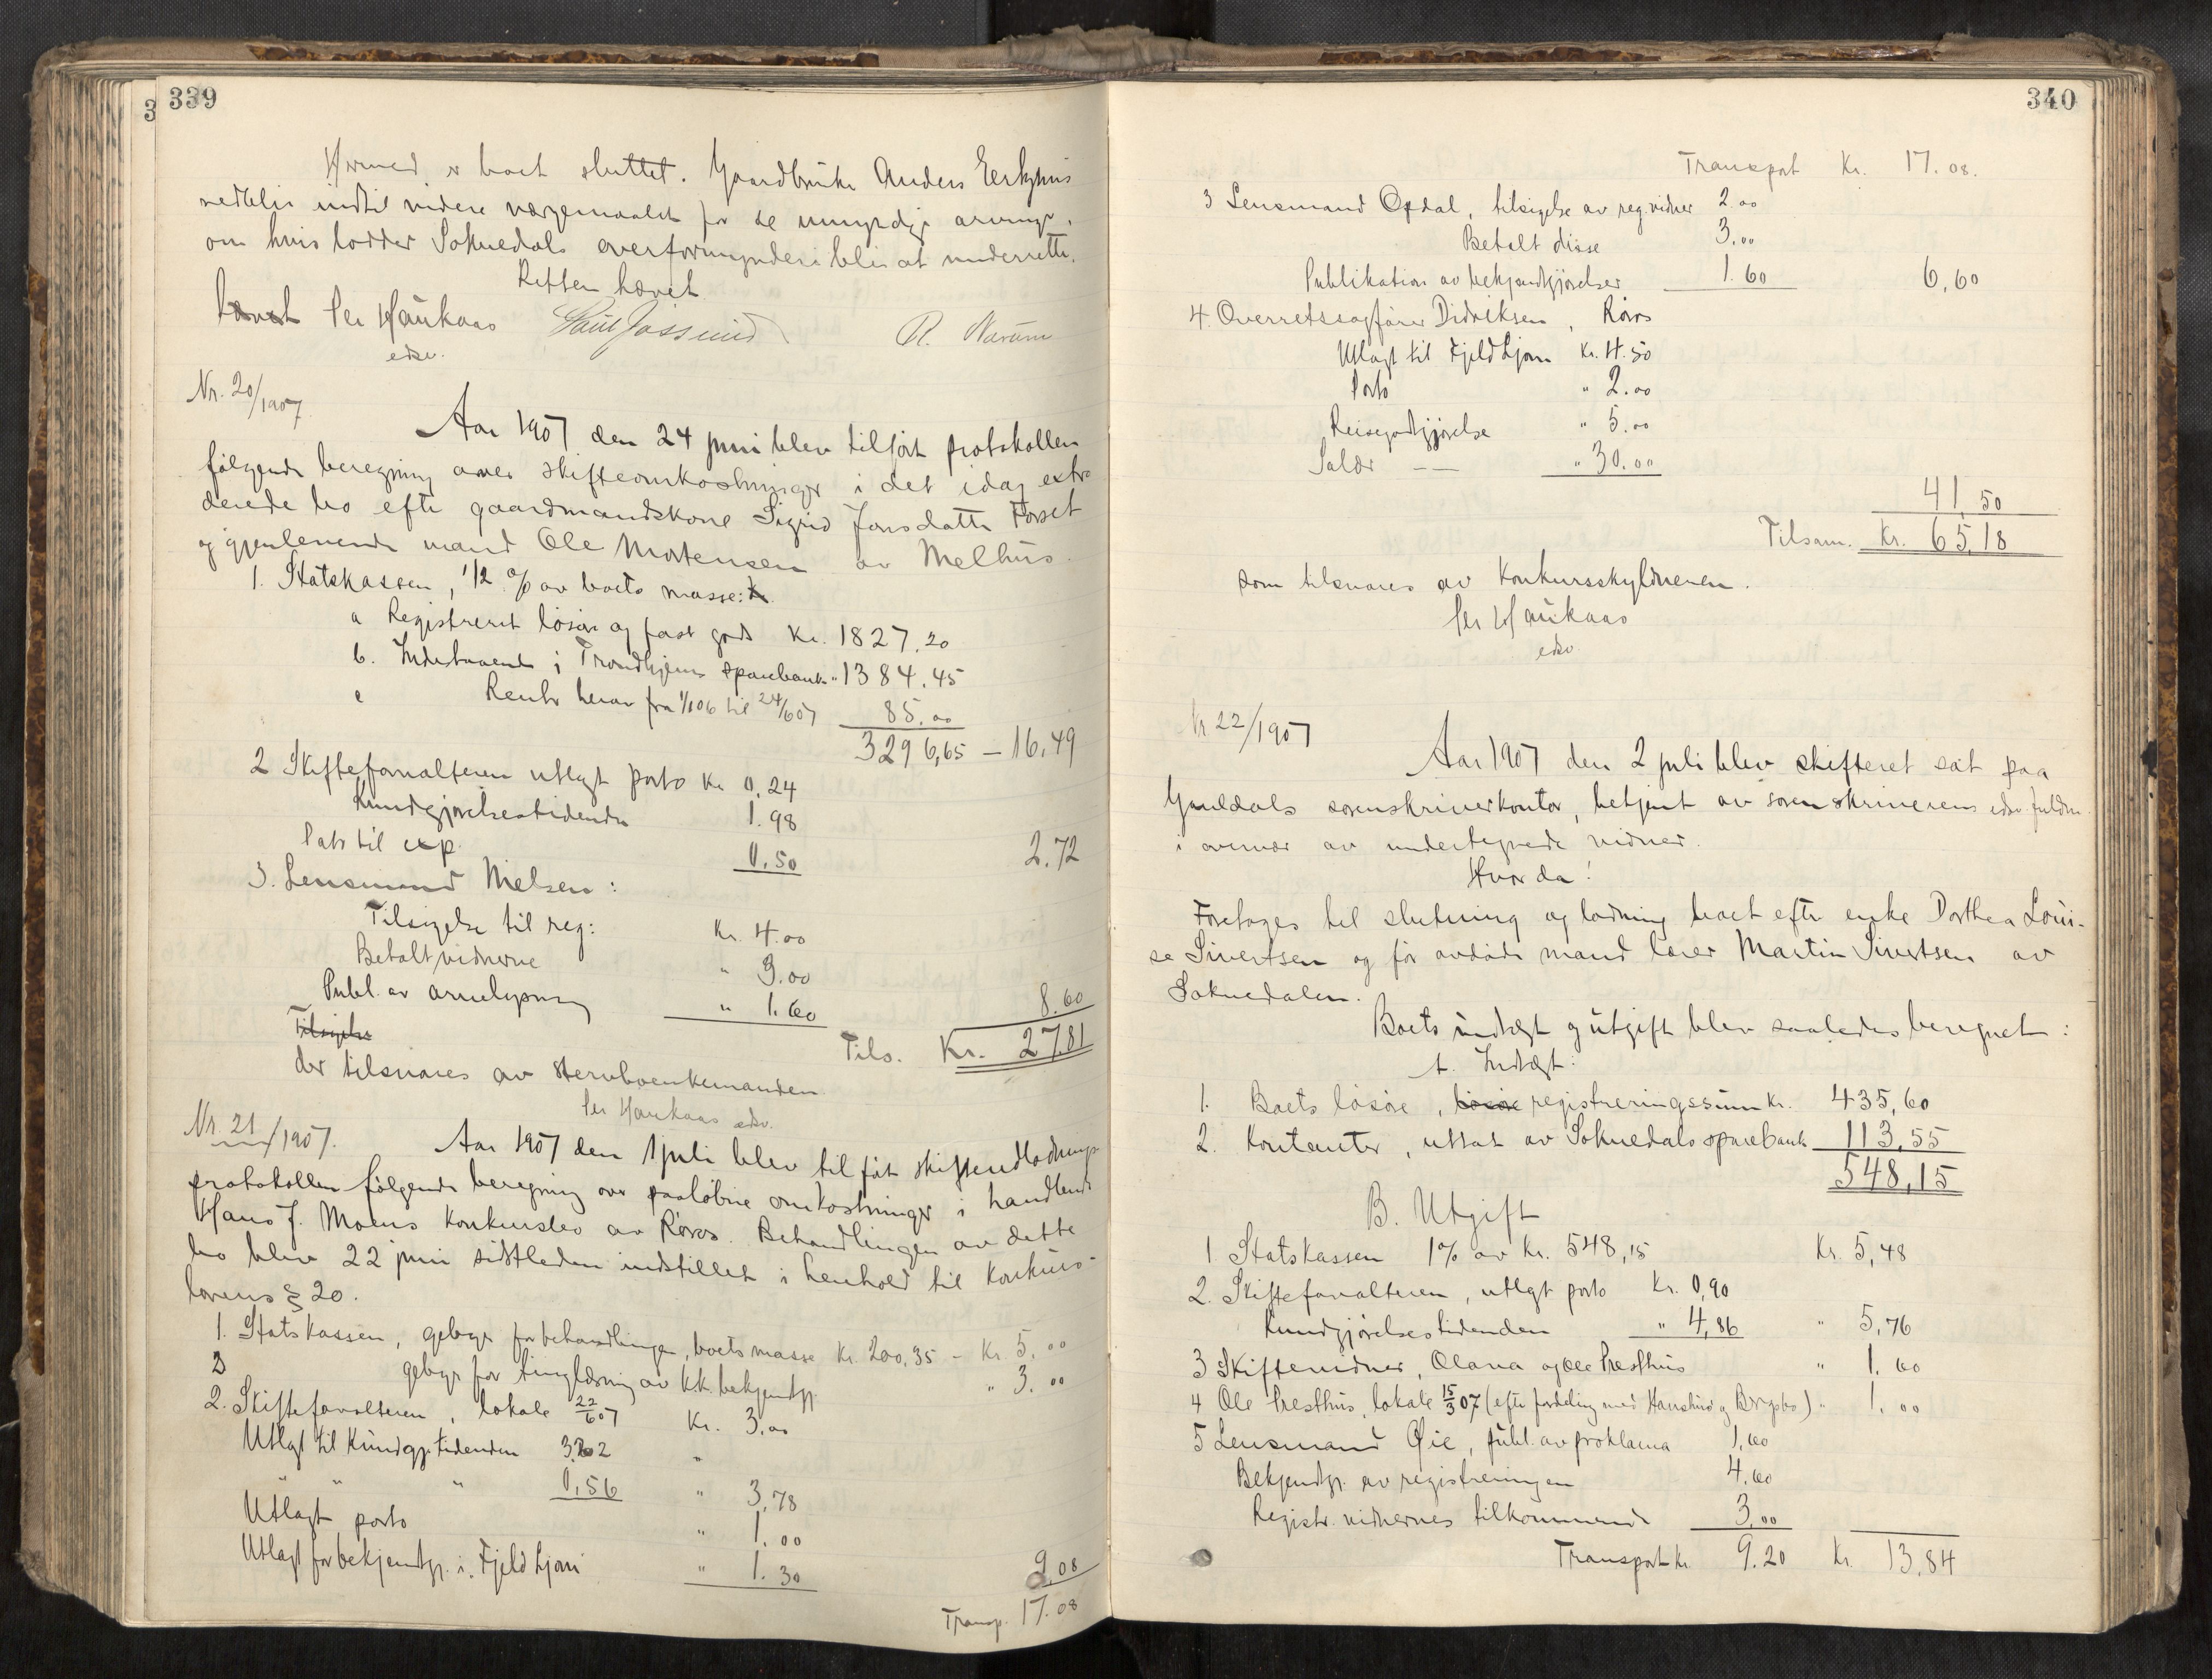 339
Hermed er boet sluttet. Gaardbruker Anders
vedblir indtil videre værgemaalet for de umyndige arvinger,
om hvis lodder Soknedals overformynderi blir at underrette.
Retten hævet
Per Haukaas
edsv.
R. Warum
Nr. 20/1907
Aar 1907 den 24 juni blev tilført protokollen
følgende beregning over skifteomkostninger i det idag extra
derede bo efter gaardmandskone Sigrid Jonsdatter Forset
og gjenlevende mand Ole Mortensen av Melhus.
1. Statskassen, 1/2 % av boets masse:
a Registreret løsøre og fast gods Kr. 1827,20
b. Indestaaende i Trondhjems sparebank " 1384.45
c Renter herav fra 1/1 06 til 24/6 07 85.00
3296,65 – 16,49
2 Skifteforvalteren utlagt porto Kr 0,24
Kundgjørelsestidende 1.98
Pats til exp. 0.50 2.72
3. Lensmand Nielsen:
Tilsigelse til reg: Kr. 4.00
Betalt vidnerne " 3.00
Publ. av arvelysning " 1.60 8.60
Tilsigelse
Tils. Kr. 27.81
der tilsvares av stervboenkemanden
Per Haukaas edsv.
Nr. 21/1907.
Aar 1907 den 1 juli blev tilført skifteudlodnings-
protokollen følgende beregning over paaløbne omkostninger i handlende
Hans J. Moens konkursbo av Røros. Behandlingen av dette
bo blev 22 juni sidstleden indstillet i henhold til Konkurs-
lovens § 20.
1. Statskassen, gebyr for behandlingen, boets masse Kr. 200,35 – Kr. 5.00
gebyr for tinglæsning av kk. bekjentgj. " 3.00
2. Skifteforvalteren, lokale 22/6 07 Kr. 3,00
Utlagt til Kundgj. tidenden 3,22 "
" " " 0,56 " 3,78
Utlagt porto " 1.00
Utlagt for bekjentgj. i Fjeld Ljom " 1.30 9,08
Transp. 17.08
340
Transport Kr. 17.08.
3 Lensmand Opdal, tilsigelse av reg. vidner 2.00
Betalt disse 3.00
Publikation av bekjendtgjørelser 1.60 6,60
4. Overretssagfører Didriksen, Røros
Utlagt til Fjeld Ljom Kr. 4.50
Porto " 2.00
Reisegodtgjørelse " 5.00
Salær –– " 30.00
41,50
Tilsam. Kr. 65,18
som tilsvares av Konkursskyldneren.
Per Haukaas
edsv
Nr 22/1907
Aar 1907 den 2 juli blev skifteret sat paa
Gauldals sorenskriverkontor, betjent av sorenskriverens edsv. fuldm.
i overvær av undertegnede vidner.
Hvorda!
Foretages til slutning og lodning boet efter enke Dorthea Loui-
se Sivertsen og før avdøde mand lærer Martin Sivertsen av
Soknedalen.
Boets indtægt og utgift blev saaledes beregnet:
A. Indtægt:
1. Boets løsøre, løsøre registreringssum Kr. 435,60
2. Kontanter, uttat av Soknedals sparebank 113,55
548,15
B. Utgift
1 Statskassen 1% av Kr. 548,15 Kr. 5,48
2. Skifteforvalteren, utlagt porto Kr. 0,90
Kundgjørelsestidenden " 4,86 " 5,76
3 Skiftevidner, Olava og Ole Presthus " 1.60
4 Ole Presthus, lokale 15/3 07 (efter fordeling med Hanshus og ) " 1.00
5 Lensmand Øie, publ. av proklama 1,60
Bekjendtgj. av registreringen 4.60
Registr. vidnernes tilkommende 3,00
Transport Kr. 9.20 Kr. 13,84